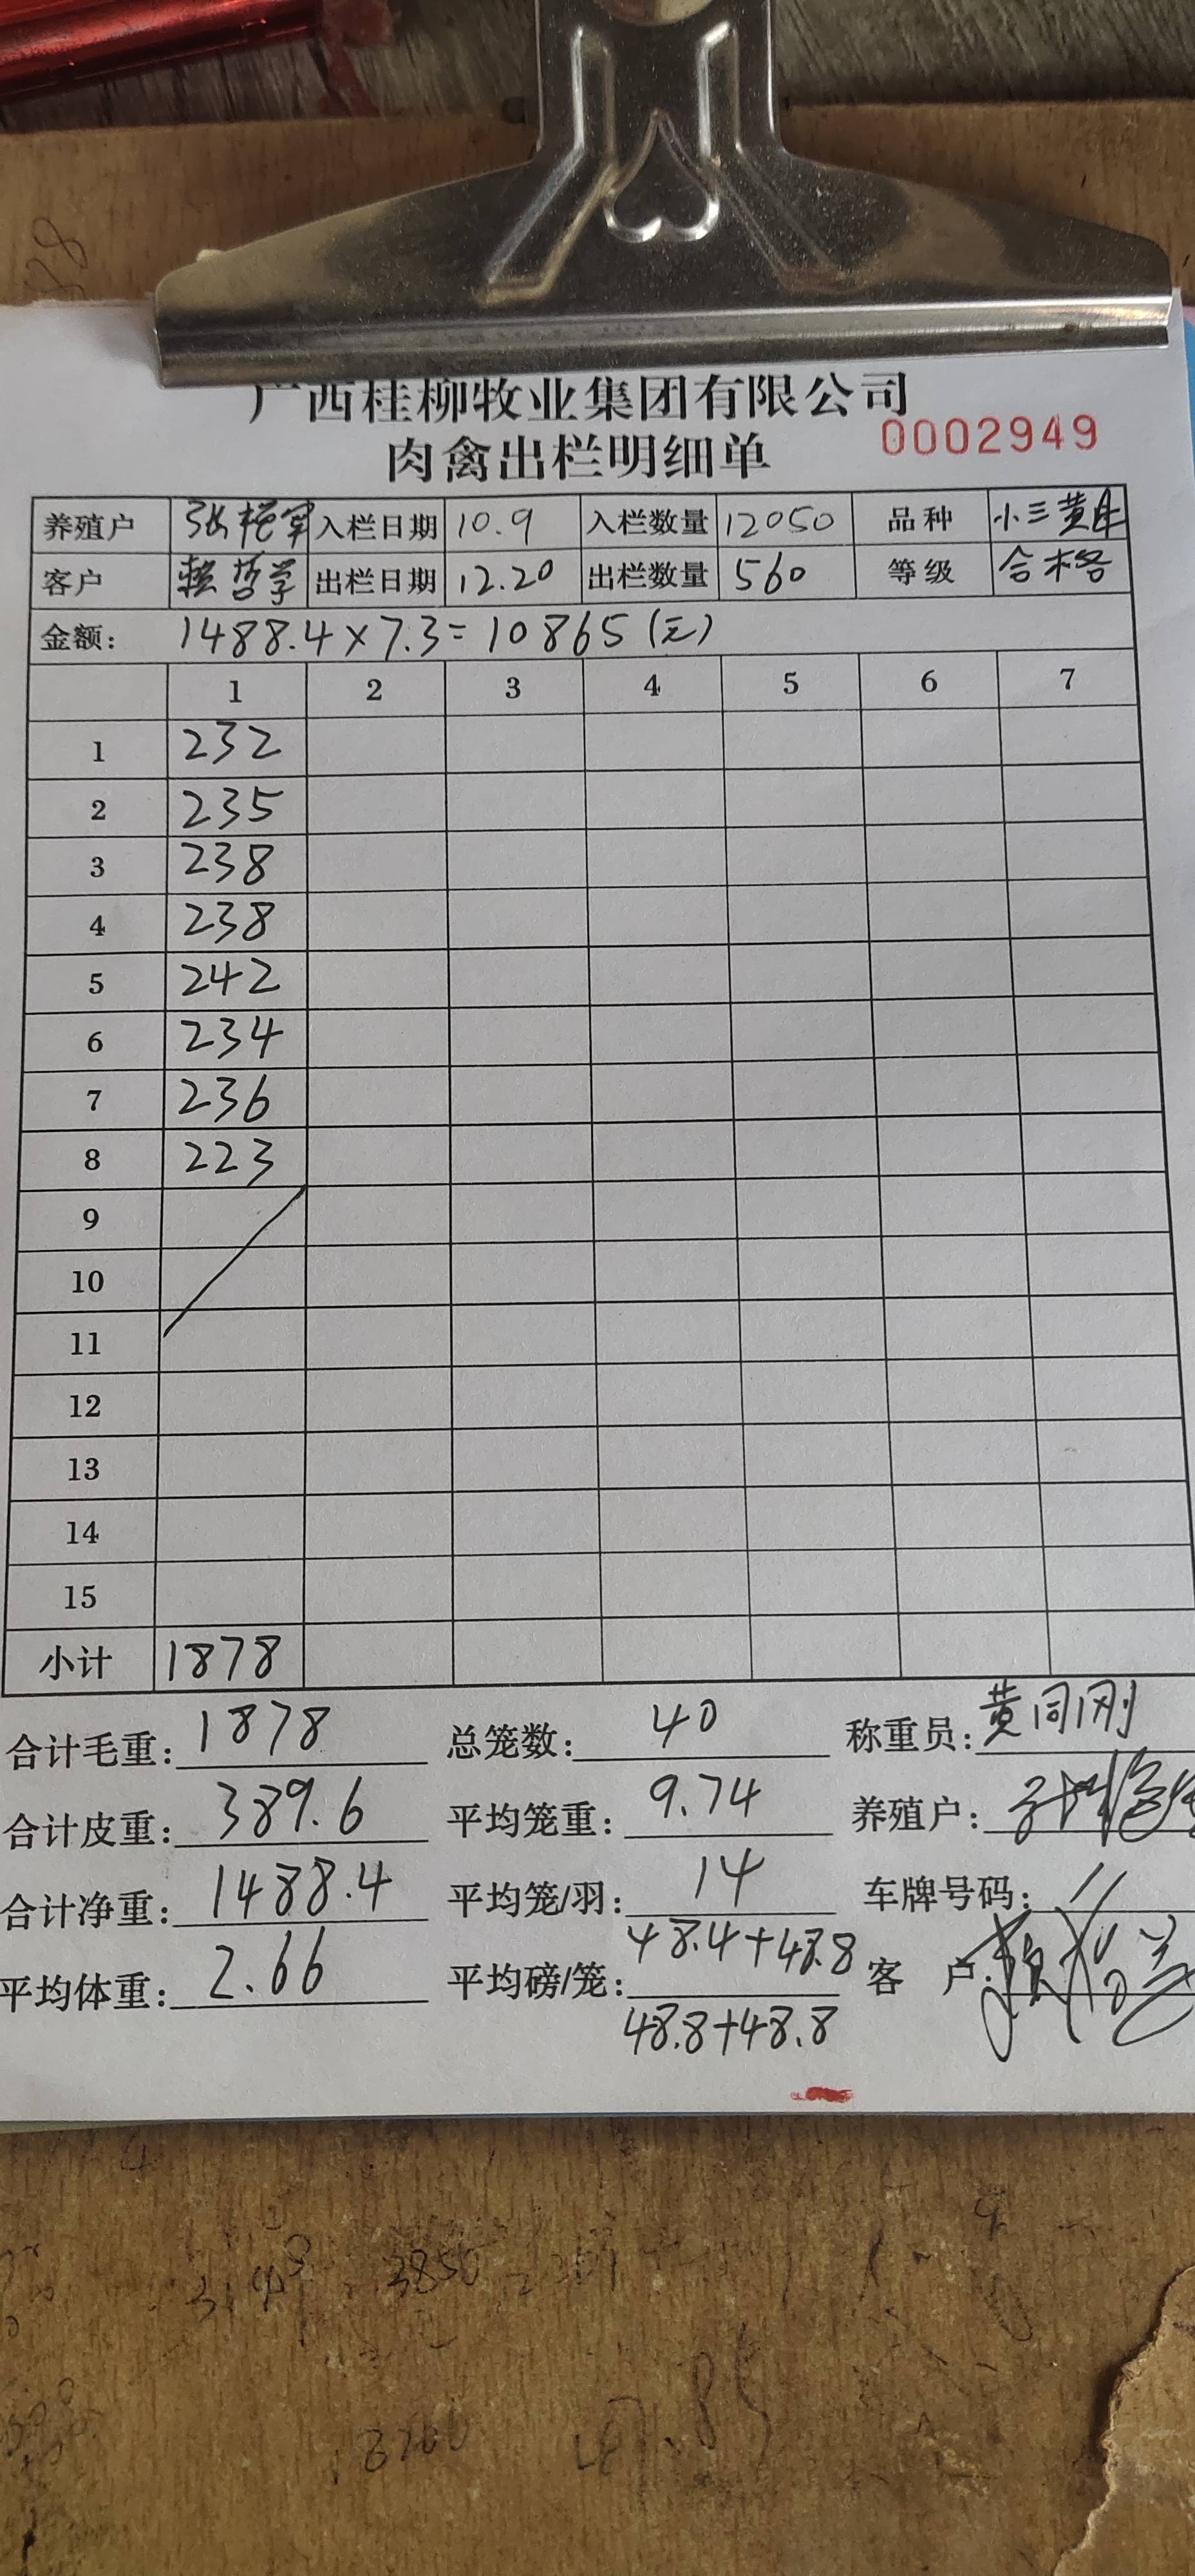 广西桂柳牧业集团有限公司
肉禽出栏明细单 0002949
养殖户 张 入栏日期 10.9 入栏数量 12050 品种 小三黄
客户 赖哲学 出栏日期 12.20 出栏数量 560 等级 合格
金额: 1488.4×7.3=10865(元)
1 2 3 4 5 6 7
1 232
2 235
3 238
4 238
5 242
6 234
7 236
8 223
9
10
11
12
13
14
15
小计 1878
合计毛重: 1878 总笼数: 40 称重员: 黄同刚
合计皮重: 389.6 平均笼重: 9.74 养殖户:
合计净重: 1488.4 平均笼/羽: 14 车牌号码:
平均体重: 2.66 平均磅/笼: 48.4+48.8 客 户:
48.8+48.8
3850